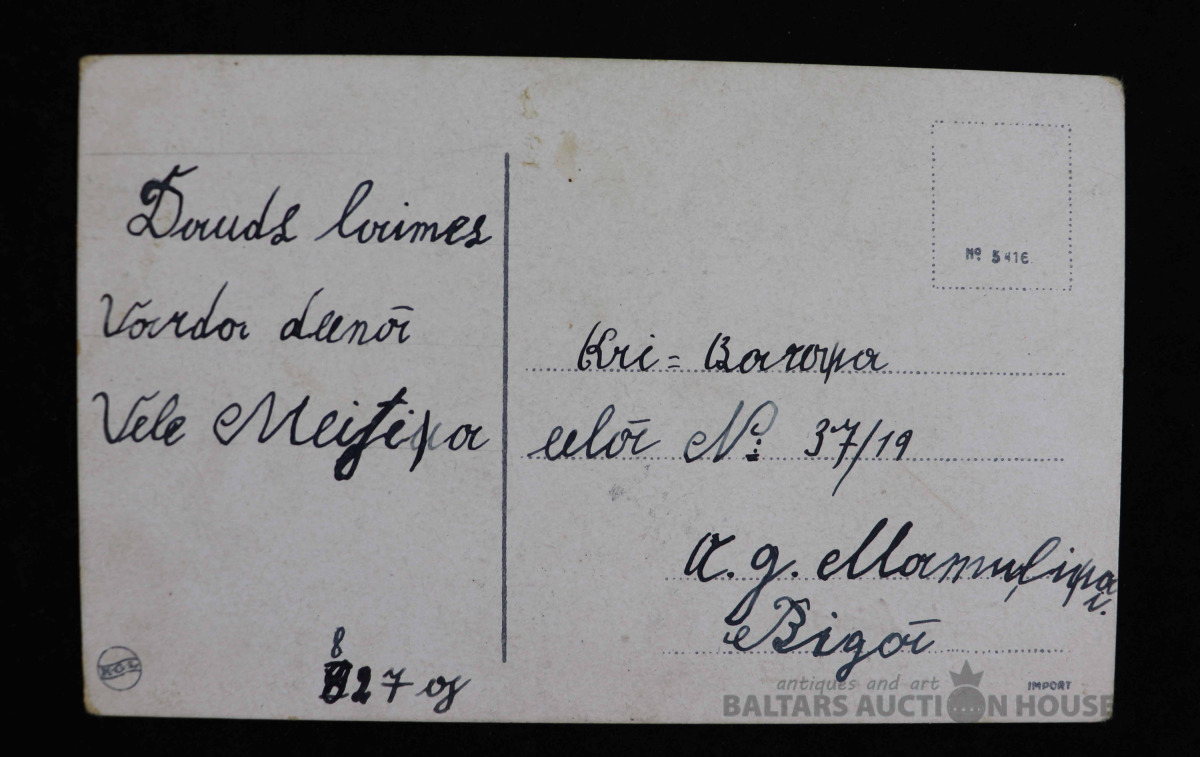 Dauds laimes
Vārda deenā
Vele Meiţiņa
8
27 g
Nº 5416
Kri = Barona
eelā Nº: 37/19
A. g. Mamuļiņai.
Rigā
IMPORT
antiques and art
BALTARS AUCTION HOUSE